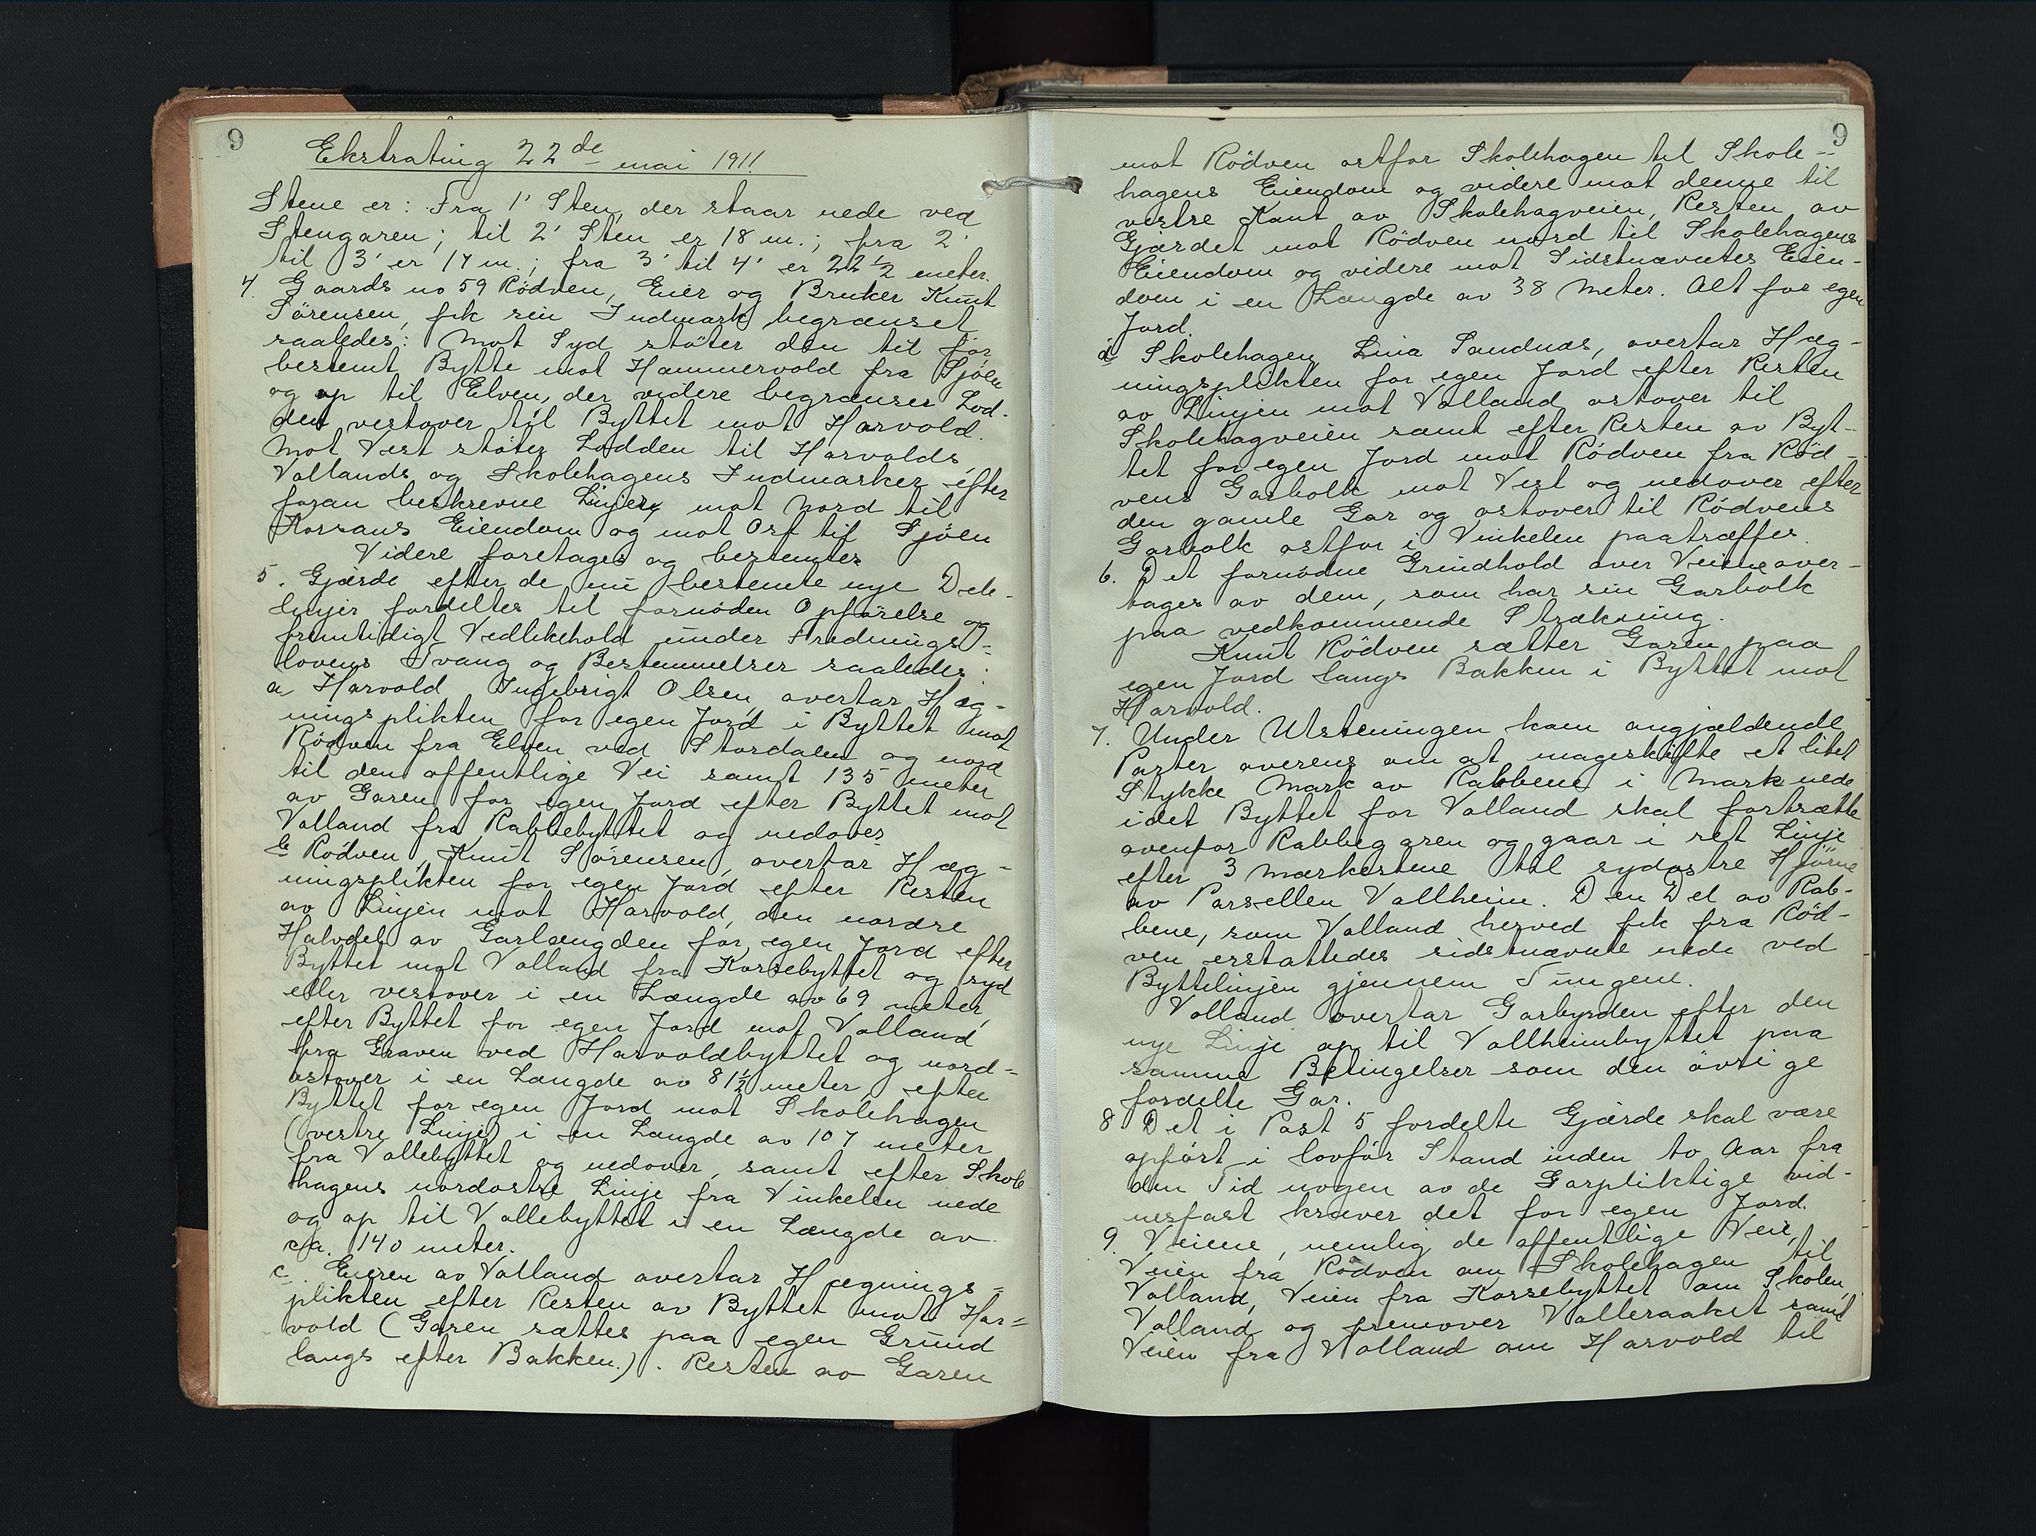 9
Ekstrating 22de mai 1911
Stene er: Fra 1' Sten, der staar nede ved
Stengaren; til 2' Sten er 18 m.; fra 2'
til 3' er 17 m.; fra 3' til 4' er 22 1/2 meter.
4. Gaards no 59 Rödven, Eier og Bruker Knut
Sörensen, fik sin Indmark begrænset
saaledes: Mot Syd stöter den til för
bestemt Bytte mot Hammervold fra Sjöen
og op til Elven, der videre begrænser Lod-
den vestover til Byttet mot Harvold.
Mot Vest stöter Lodden til Harvolds,
Vollands og Skolehagens Indmarker efter
foran beskrevne Linjer, mot Nord til
Korsans Eiendom og mot Ost til Sjöen
Videre foretages og bestemtes
5. Gjærde efter de nu bestemte nye Dele-
linjer fordeltes til fornöden Opförelse og
fremtidigt Vedlikehold under Frednings-
lovens Tvang og Bestemmelser saaledes:
a, Harvold, Ingebrigt Olsen, overtar Hæg-
ningsplikten for egen Jord i Byttet mot
Rödven fra Elven ved Stordalen og nord
til den offentlige Vei samt 135 meter
av Garen for egen Jord efter Byttet mot
Volland fra Rabbebyttet og nedover
b Rödven, Knut Sörensen, overtar Hæg-
ningsplikten for egen Jord efter Resten
av Linjen mot Harvold, den nordre
Halvdel av Garlængden for egen Jord efter
Byttet mot Volland fra Korsebyttet og syd
eller vestover i en Længde av 69 meter,
efter Byttet for egen Jord mot Volland
fra Graven ved Harvoldbyttet og nord-
ostover i en Længde av 81 1/2 meter, efter
Byttet for egen Jord mot Skolehagen
(vestre Linje) i en Længde av 107 meter
fra Vollebyttet og nedover, samt efter Skole
hagens nordostre Linje fra Vinkelen nede
og op til Vollebyttet i en Længde av
ca. 140 meter.
c. Eieren av Volland overtar Hægnings-
plikten efter Resten av Byttet mot Har-
vold (Garen sættes paa egen Grund
langs efter Bakken.). Resten av Garen
9
mot Rödven ostfor Skolehagen til Skole-
hagens Eiendom og videre mot denne til
vestre Kant av Skolehagveien, Resten av
Gjærdet mot Rödven nord til Skolehagens
Eiendom og videre mot Sidstnævntes Eien-
dom i en Længde av 38 Meter. Alt for egen
Jord.
d Skolehagen, Lina Sandnæs, overtar Hæg-
ningsplikten for egen Jord efter Resten
av Linjen mot Volland ostover til
Skolehagveien samt efter Resten av Byt-
tet for egen Jord mot Rödven fra Röd-
vens Garbolk mot Vest og nedover efter
den gamle Gar og ostover til Rödvens
Garbolk ostfor i Vinkelen paatræffes.
6. Det fornödne Grindhold over Veiene over-
tages av dem, som har sin Garbolk
paa vedkommende Strækning.
Knut Rödven sætter Garen paa
egen Jord langs Bakken i Byttet mot
Harvold.
7. Under Utsteningen kom angjældende
Parter overens om at mageskifte et litet
Stykke Mark av Rabbene i Mark nede
idet Byttet for Volland skal fortsætte
ovenfor Rabbegaren og gaar i ret Linje
efter 3 Merkestene til sydostre Hjörne
av Parsellen Vollheim. Den Del av Rab-
bene, som Volland herved fik fra Röd-
ven erstattedes sidstnævnte nede ved
Byttelinjen gjennem Tungene.
Volland overtar Garbyrden efter den
nye Linje op til Vollheimbyttet paa
samme Betingelser som den övrige
fordelte Gar.
8 Det i Post 5 fordelte Gjærde skal være
opfört i lovför Stand inden to Aar fra
den Tid nogen av de Garpliktige vid-
nesfast kræver det for egen Jord.
9. Veiene, nemlig de offentlige Veie,
Veien fra Rödven om Skolehagen til
Volland, Veien fra Korsebyttet om Skolen,
Volland og fremover Volleraaket samt
Veien fra Volland om Harvold til